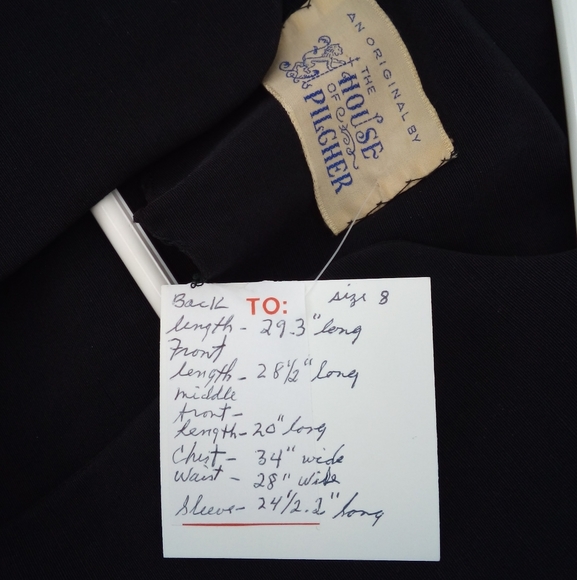 AN ORIGINAL BY
THE
HOUSE
OF
PILCHER
TO:
Back size 8
length - 29.3" long
Front
length - 28 1/2" long
middle
front -
length - 20" long
Chest - 34" wide
Waist - 28" wide
Sleeve - 24 1/2.2" long